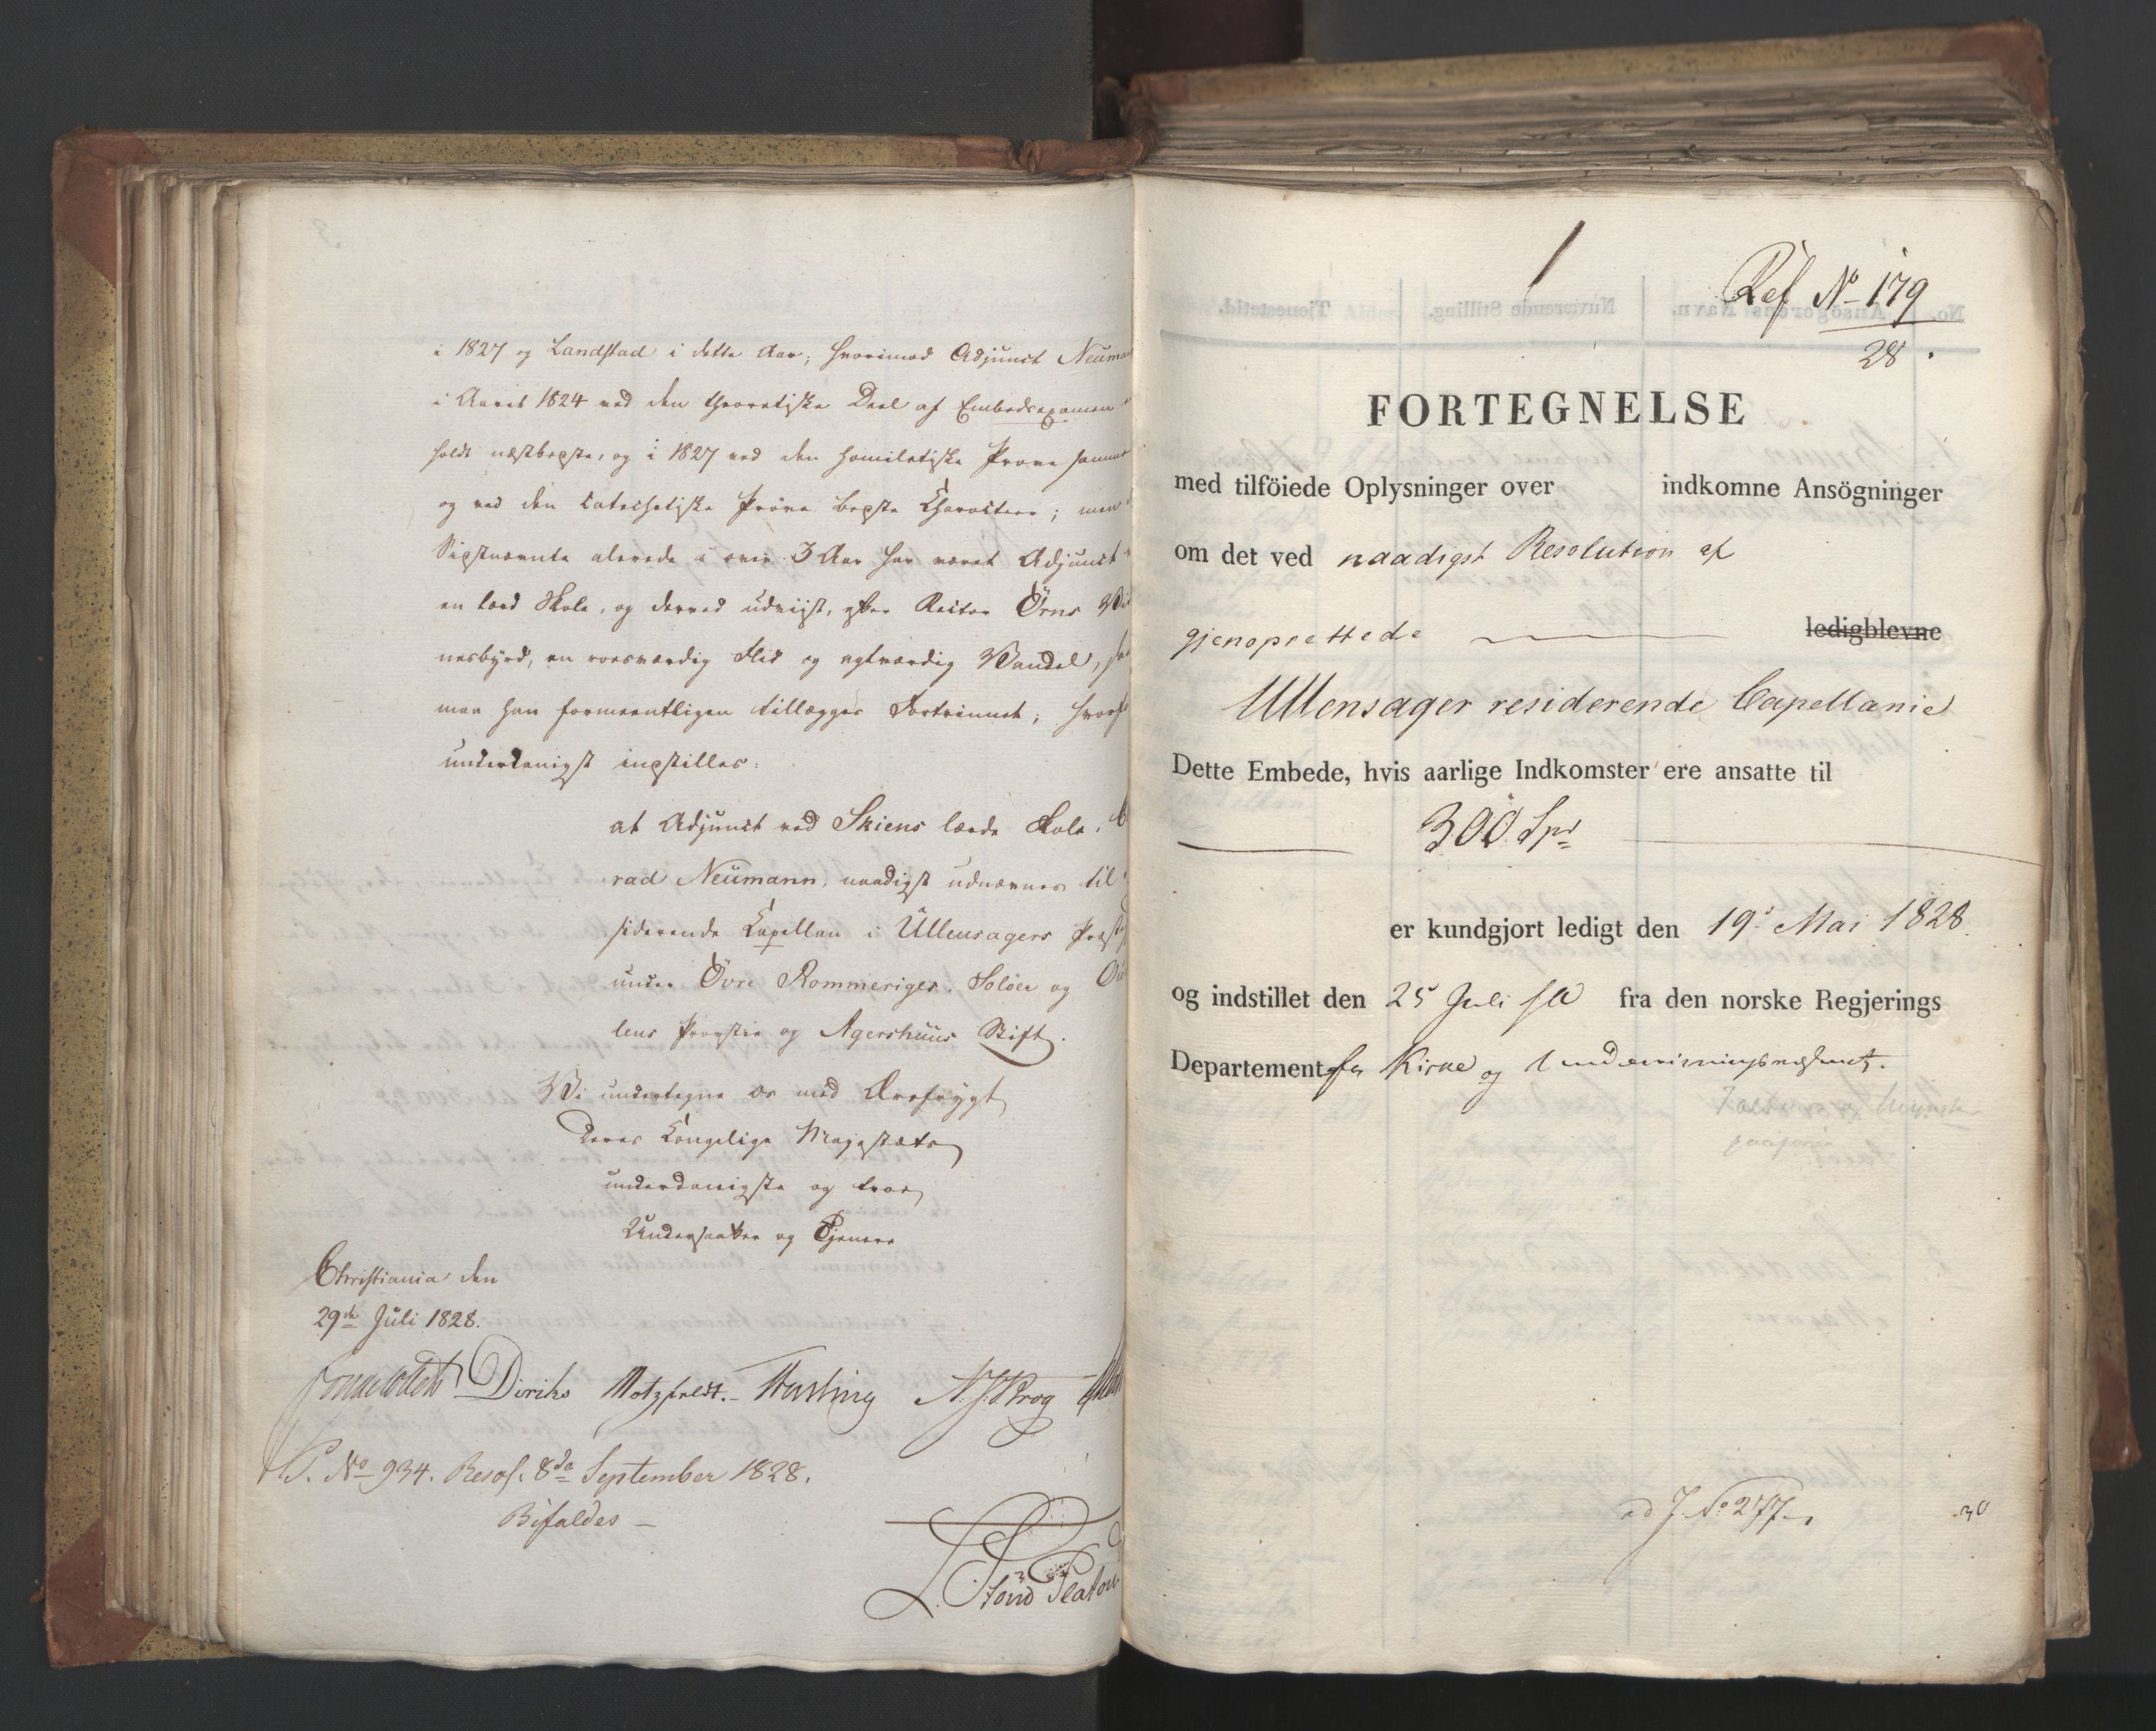 i 1827 og Landstad i dette Aar; hvorimod Adjunct Neuma
i Aaret 1824 ved den theoretiske Deel af Embedsexamen
holdt næstbedste, og i 1827 ved den homiletiske Prøve samme
og ved den catechetiske Prøve bedste Charakteer; men
Sidstnævnte allerede i over 3 Aar har været Adjunct
en lærd Skole, og derved udviist, efter Rector Örns Vid
nesbyrd, en roesværdig Flid og agtværdig Vandel,
man ham formeentligen tillægges Fortrinnet; hvorf
underdanigst indstilles:
at Adjunct ved Skiens lærde Skole,
rad Neumann, naadigst udnævnes til
siderende Capellan i Ullensagers Præst
under Övre Rommeriges, Solöer og
lens Provstie og Agershuus Stift.
Vi undertegne os med Ærefrygt
Deres Kongelige Majestæts
underdanigste og troe
Undersaatter og Tjenere
Christiania den
29de Juli 1828.
Diriks Motzfeldt. N. J. Krog
No 934. Resol. 8de September 1828.
Bifaldes —
Platou
1
Ref No 179
28.
FORTEGNELSE
med tilföiede Oplysninger over indkomne Ansögninger
om det ved naadigst Resolution af
gjenoprettede ledigblevne
Ullensager residerende Capellanie
Dette Embede, hvis aarlige Indkomster ere ansatte til
300 Spd
er kundgjort ledigt den 19de Mai 1828.
og indstillet den 25 Juli s. A. fra den norske Regjerings
Departement for Kirke og Underviisningsvæsenet.
ad J. No 277
30